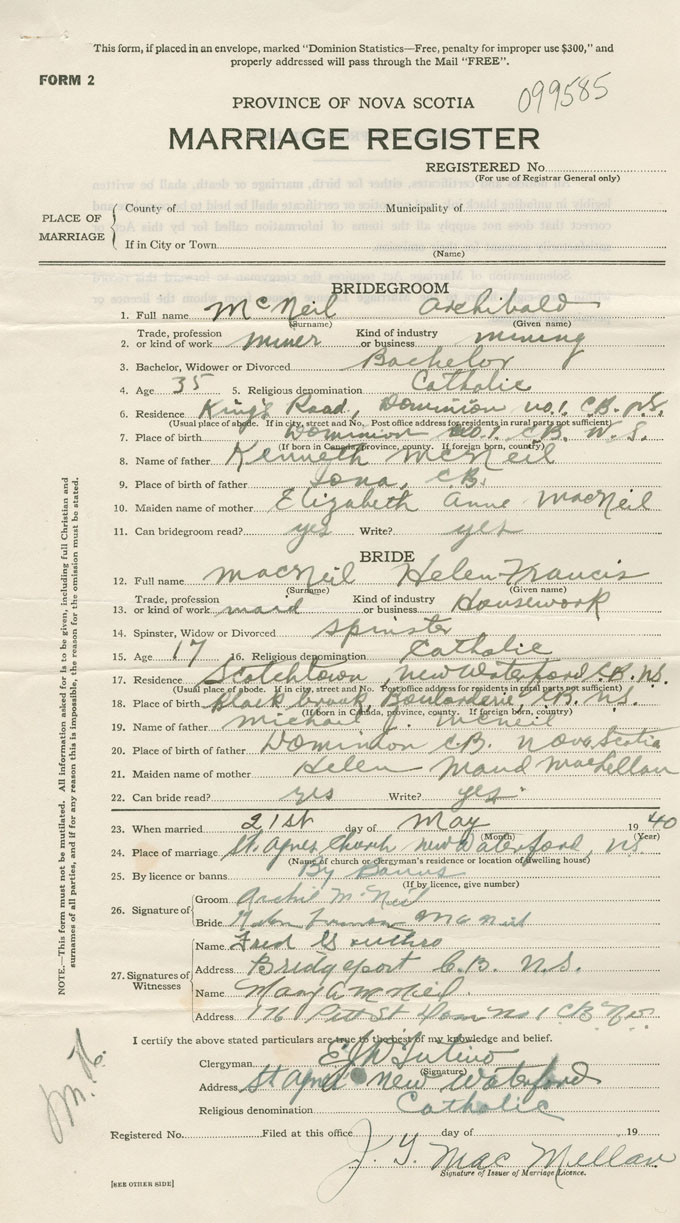 This form, if placed in an envelope, marked "Dominion Statistics—Free, penalty for improper use $300," and
properly addressed will pass through the Mail "FREE".
FORM 2
099585
PROVINCE OF NOVA SCOTIA
MARRIAGE REGISTER
REGISTERED No.
(For use of Registrar General only)
PLACE OF MARRIAGE
County of
Municipality of
If in City or Town
(Name)
BRIDEGROOM
1. Full name McNeil Archibald
(Surname) (Given name)
2. Trade, profession or kind of work miner Kind of industry or business mining
3. Bachelor, Widower or Divorced Bachelor
4. Age 35 5. Religious denomination Catholic
6. Residence King's Road, Dominion no. 1. C.B. N.S.
(Usual place of abode. If in city, street and No. Post office address for residents in rural parts not sufficient)
7. Place of birth Dominion No. 1. C.B. N.S.
(If born in Canada, province, county. If foreign born, country)
8. Name of father Kenneth McNeil
9. Place of birth of father Iona, C.B.
10. Maiden name of mother Elizabeth Anne MacNeil
11. Can bridegroom read? yes Write? yes
BRIDE
12. Full name MacNeil Helen Francis
(Surname) (Given name)
13. Trade, profession or kind of work maid Kind of industry or business Housework
14. Spinster, Widow or Divorced Spinster
15. Age 17 16. Religious denomination Catholic
17. Residence Scotchtown, New Waterford C.B. N.S.
(Usual place of abode. If in city, street and No. Post office address for residents in rural parts not sufficient)
18. Place of birth Black brook, Boularderie C.B. N.S.
(If born in Canada, province, county. If foreign born, country)
19. Name of father Michael J. McNeil
20. Place of birth of father Dominion C.B. Nova Scotia
21. Maiden name of mother Helen Maud MacLellan
22. Can bride read? yes Write? yes
23. When married 21st day of May 1940
(Month) (Year)
24. Place of marriage St. Agnes Church New Waterford, NS
(Name of church or clergyman's residence or location of dwelling house)
25. By licence or banns By Banns
(If by licence, give number)
26. Signature of
Groom Archie McNeil
Bride Helen McNeil
27. Signatures of Witnesses
Name Fred
Address Bridgeport C.B. N.S.
Name Mary A McNeil
Address 176 Pitt St Dom No 1 CB N.S.
I certify the above stated particulars are true to the best of my knowledge and belief.
Clergyman
(Signature)
Address St Agnes New Waterford
Religious denomination Catholic
Registered No. Filed at this office day of 19
J. Y. Mac Mellan
Signature of Issuer of Marriage Licence.
[SEE OTHER SIDE]
NOTE.—This form must not be mutilated. All information asked for is to be given, including full Christian and
surnames of all parties, and if for any reason this is impossible, the reason for the omission must be stated.